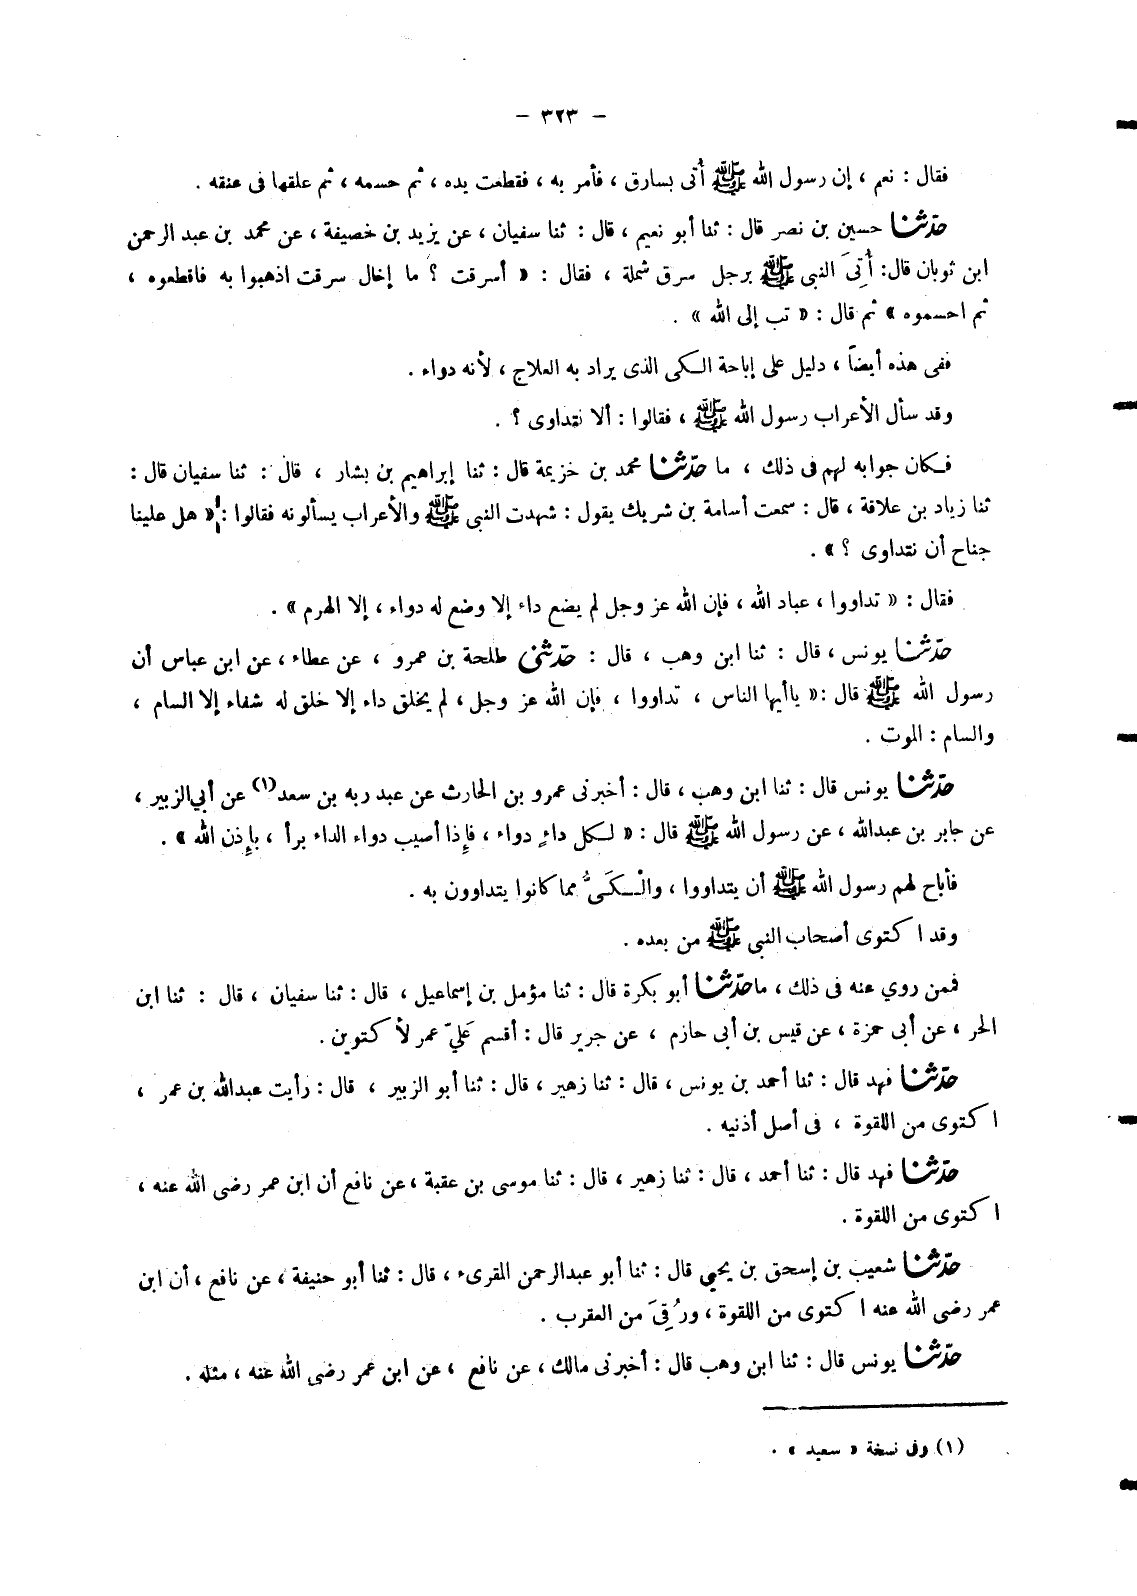 — ٣٢٣ —
فقال : نعم ، إن رسول الله ﷺ أُتى بسارق ، فأمر به ، فقطعت يده ، ثم حسمه ، ثم علقها فى عنقه .
حدّثنا حسين بن نصر قال : ثنا أبو نعيم ، قال : ثنا سفيان ، عن يزيد بن خصيفة ، عن محمد بن عبد الرحمن
ابن ثوبان قال: أُتِىَ النبى ﷺ برجل سرق شملة ، فقال : « أسرقت ؟ ما إخال سرقت اذهبوا به فاقطعوه ،
ثم احسموه » ثم قال : « تب إلى الله » .
ففى هذه أيضاً ، دليل على إباحة الكى الذى يراد به العلاج ، لأنه دواء .
وقد سأل الأعراب رسول الله ﷺ ، فقالوا : ألا نتداوى ؟ .
فكان جوابه لهم فى ذلك ، ما حدّثنا محمد بن خزيمة قال : ثنا إبراهيم بن بشار ، قال : ثنا سفيان قال :
ثنا زياد بن علاقة ، قال : سمعت أسامة بن شريك يقول : شهدت النبى ﷺ والأعراب يسألونه فقالوا : « هل علينا
جناح أن نتداوى ؟ » .
فقال : « تداووا ، عباد الله ، فإن الله عز وجل لم يضع داء إلا وضع له دواء ، إلا الهرم » .
حدّثنا يونس ، قال : ثنا ابن وهب ، قال : حدّثنى طلحة بن عمرو ، عن عطاء ، عن ابن عباس أن
رسول الله ﷺ قال :« ياأيها الناس ، تداووا ، فإن الله عز وجل ، لم يخلق داء إلا خلق له شفاء إلا السام ،
والسام : الموت .
حدّثنا يونس قال : ثنا ابن وهب ، قال : أخبرنى عمرو بن الحارث عن عبد ربه بن سعد(١) عن أبي الزبير ،
عن جابر بن عبدالله ، عن رسول الله ﷺ قال : « لكل داءٍ دواء ، فإذا أصيب دواء الداء برأ ، بإذن الله » .
فأباح لهم رسول الله ﷺ أن يتداووا ، والْكَىُّ مما كانوا يتداوون به .
وقد اكتوى أصحاب النبى ﷺ من بعده .
فمن روي عنه فى ذلك ، ما حدّثنا أبو بكرة قال : ثنا مؤمل بن إسماعيل ، قال : ثنا سفيان ، قال : ثنا ابن
الحر ، عن أبى حمزة ، عن قيس بن أبى حازم ، عن جرير قال : أقسم عَليّ عمر لأكتوين .
حدّثنا فهد قال : ثنا أحمد بن يونس ، قال : ثنا زهير ، قال : ثنا أبو الزبير ، قال : رأيت عبدالله بن عمر ،
اكتوى من اللقوة ، فى أصل أذنيه .
حدّثنا فهد قال : ثنا أحمد ، قال : ثنا زهير ، قال : ثنا موسى بن عقبة ، عن نافع أن ابن عمر رضى الله عنه ،
اكتوى من اللقوة .
حدّثنا شعيب بن إسحق بن يحيي قال : ثنا أبو عبدالرحمن المقرىء ، قال : ثنا أبو حنيفة ، عن نافع ، أن ابن
عمر رضى الله عنه اكتوى من اللقوة ، ورُقِىَ من العقرب .
حدّثنا يونس قال : ثنا ابن وهب قال : أخبرنى مالك ، عن نافع ، عن ابن عمر رضى الله عنه ، مثله .
(١) وفى نسخة « سعيد » .